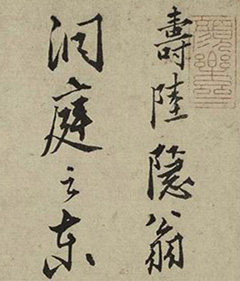 壽陸隱翁
洞庭之東